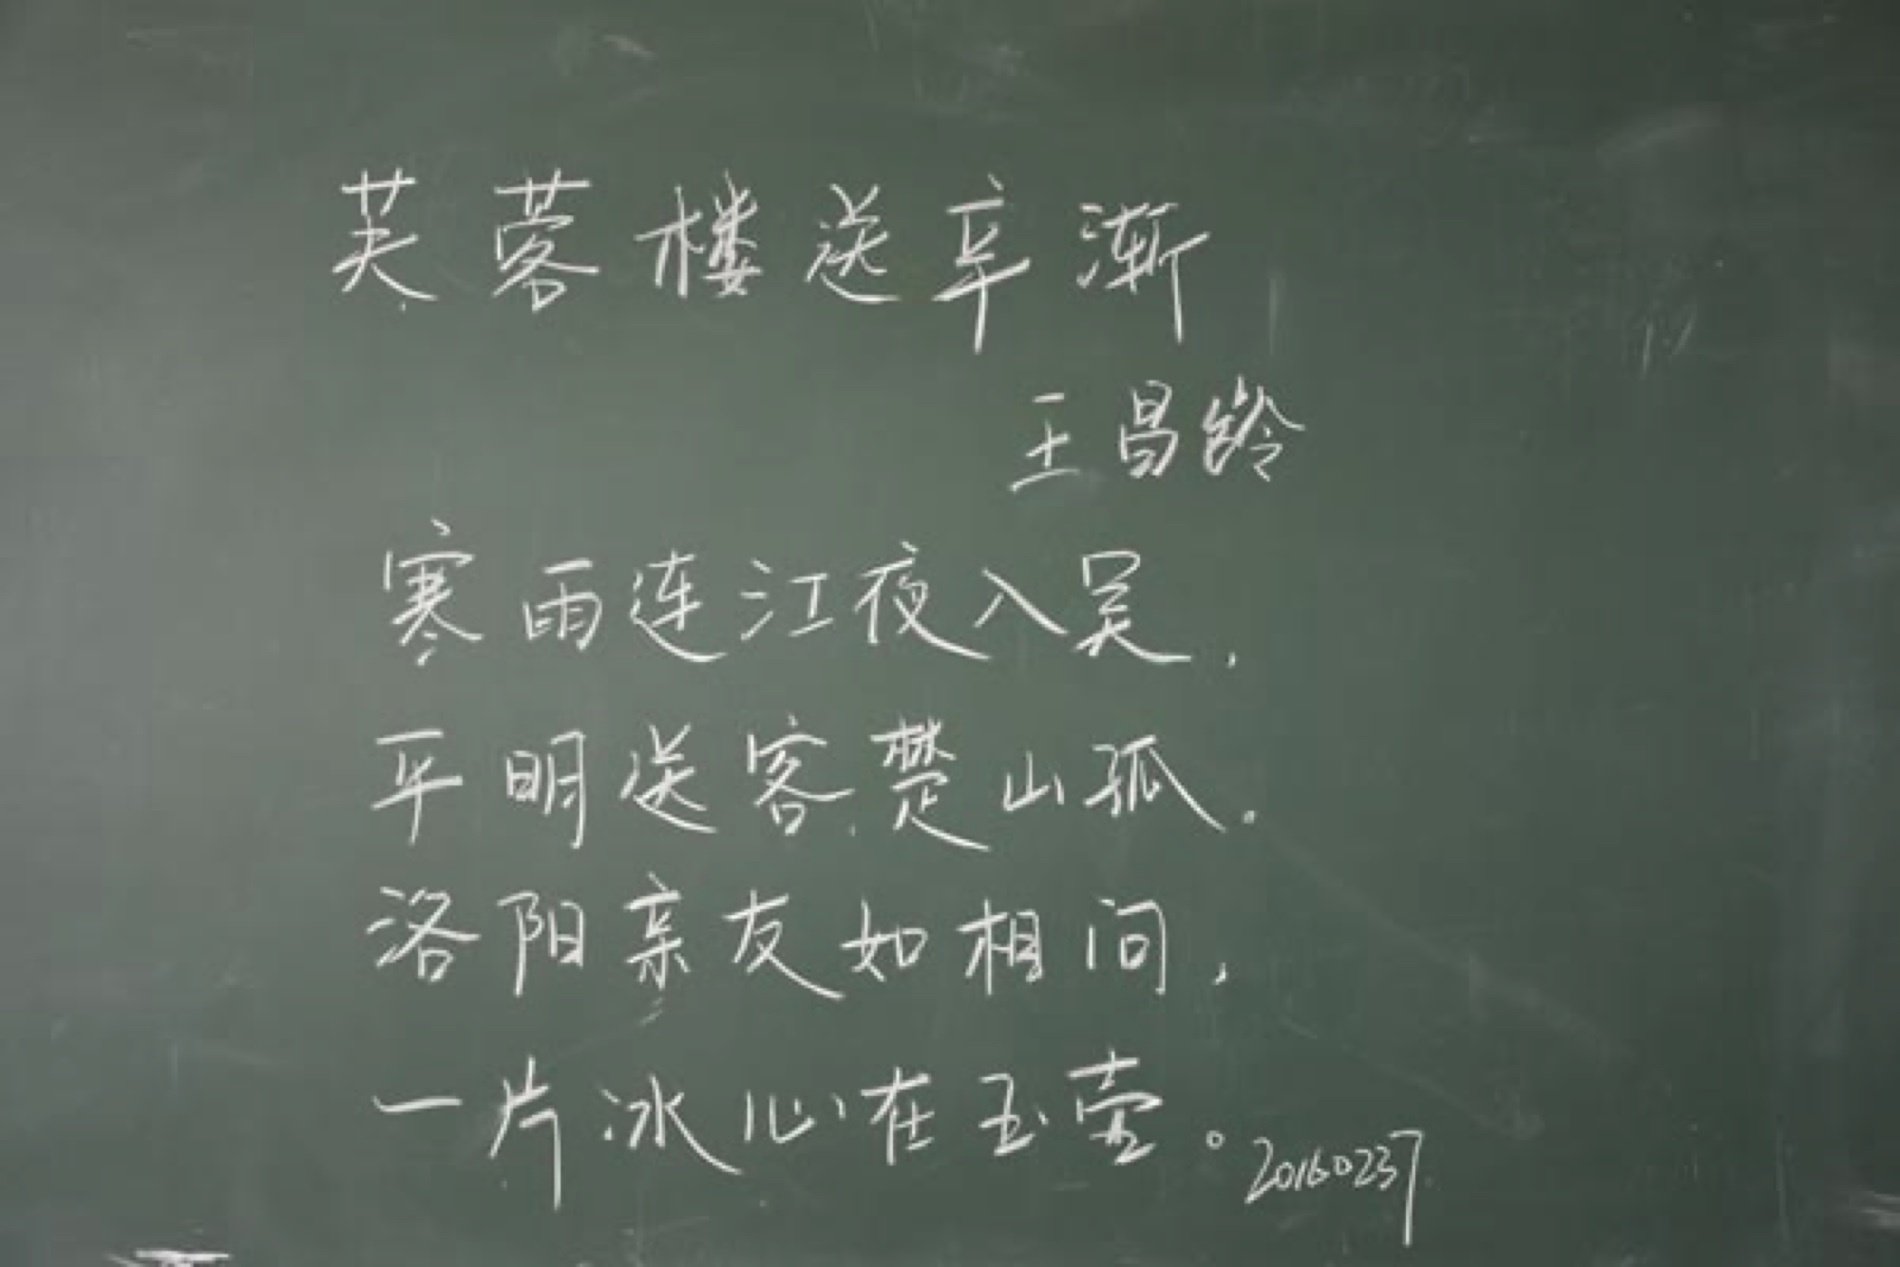 芙蓉楼送辛渐
王昌龄
寒雨连江夜入吴，
平明送客楚山孤。
洛阳亲友如相问，
一片冰心在玉壶。20160237